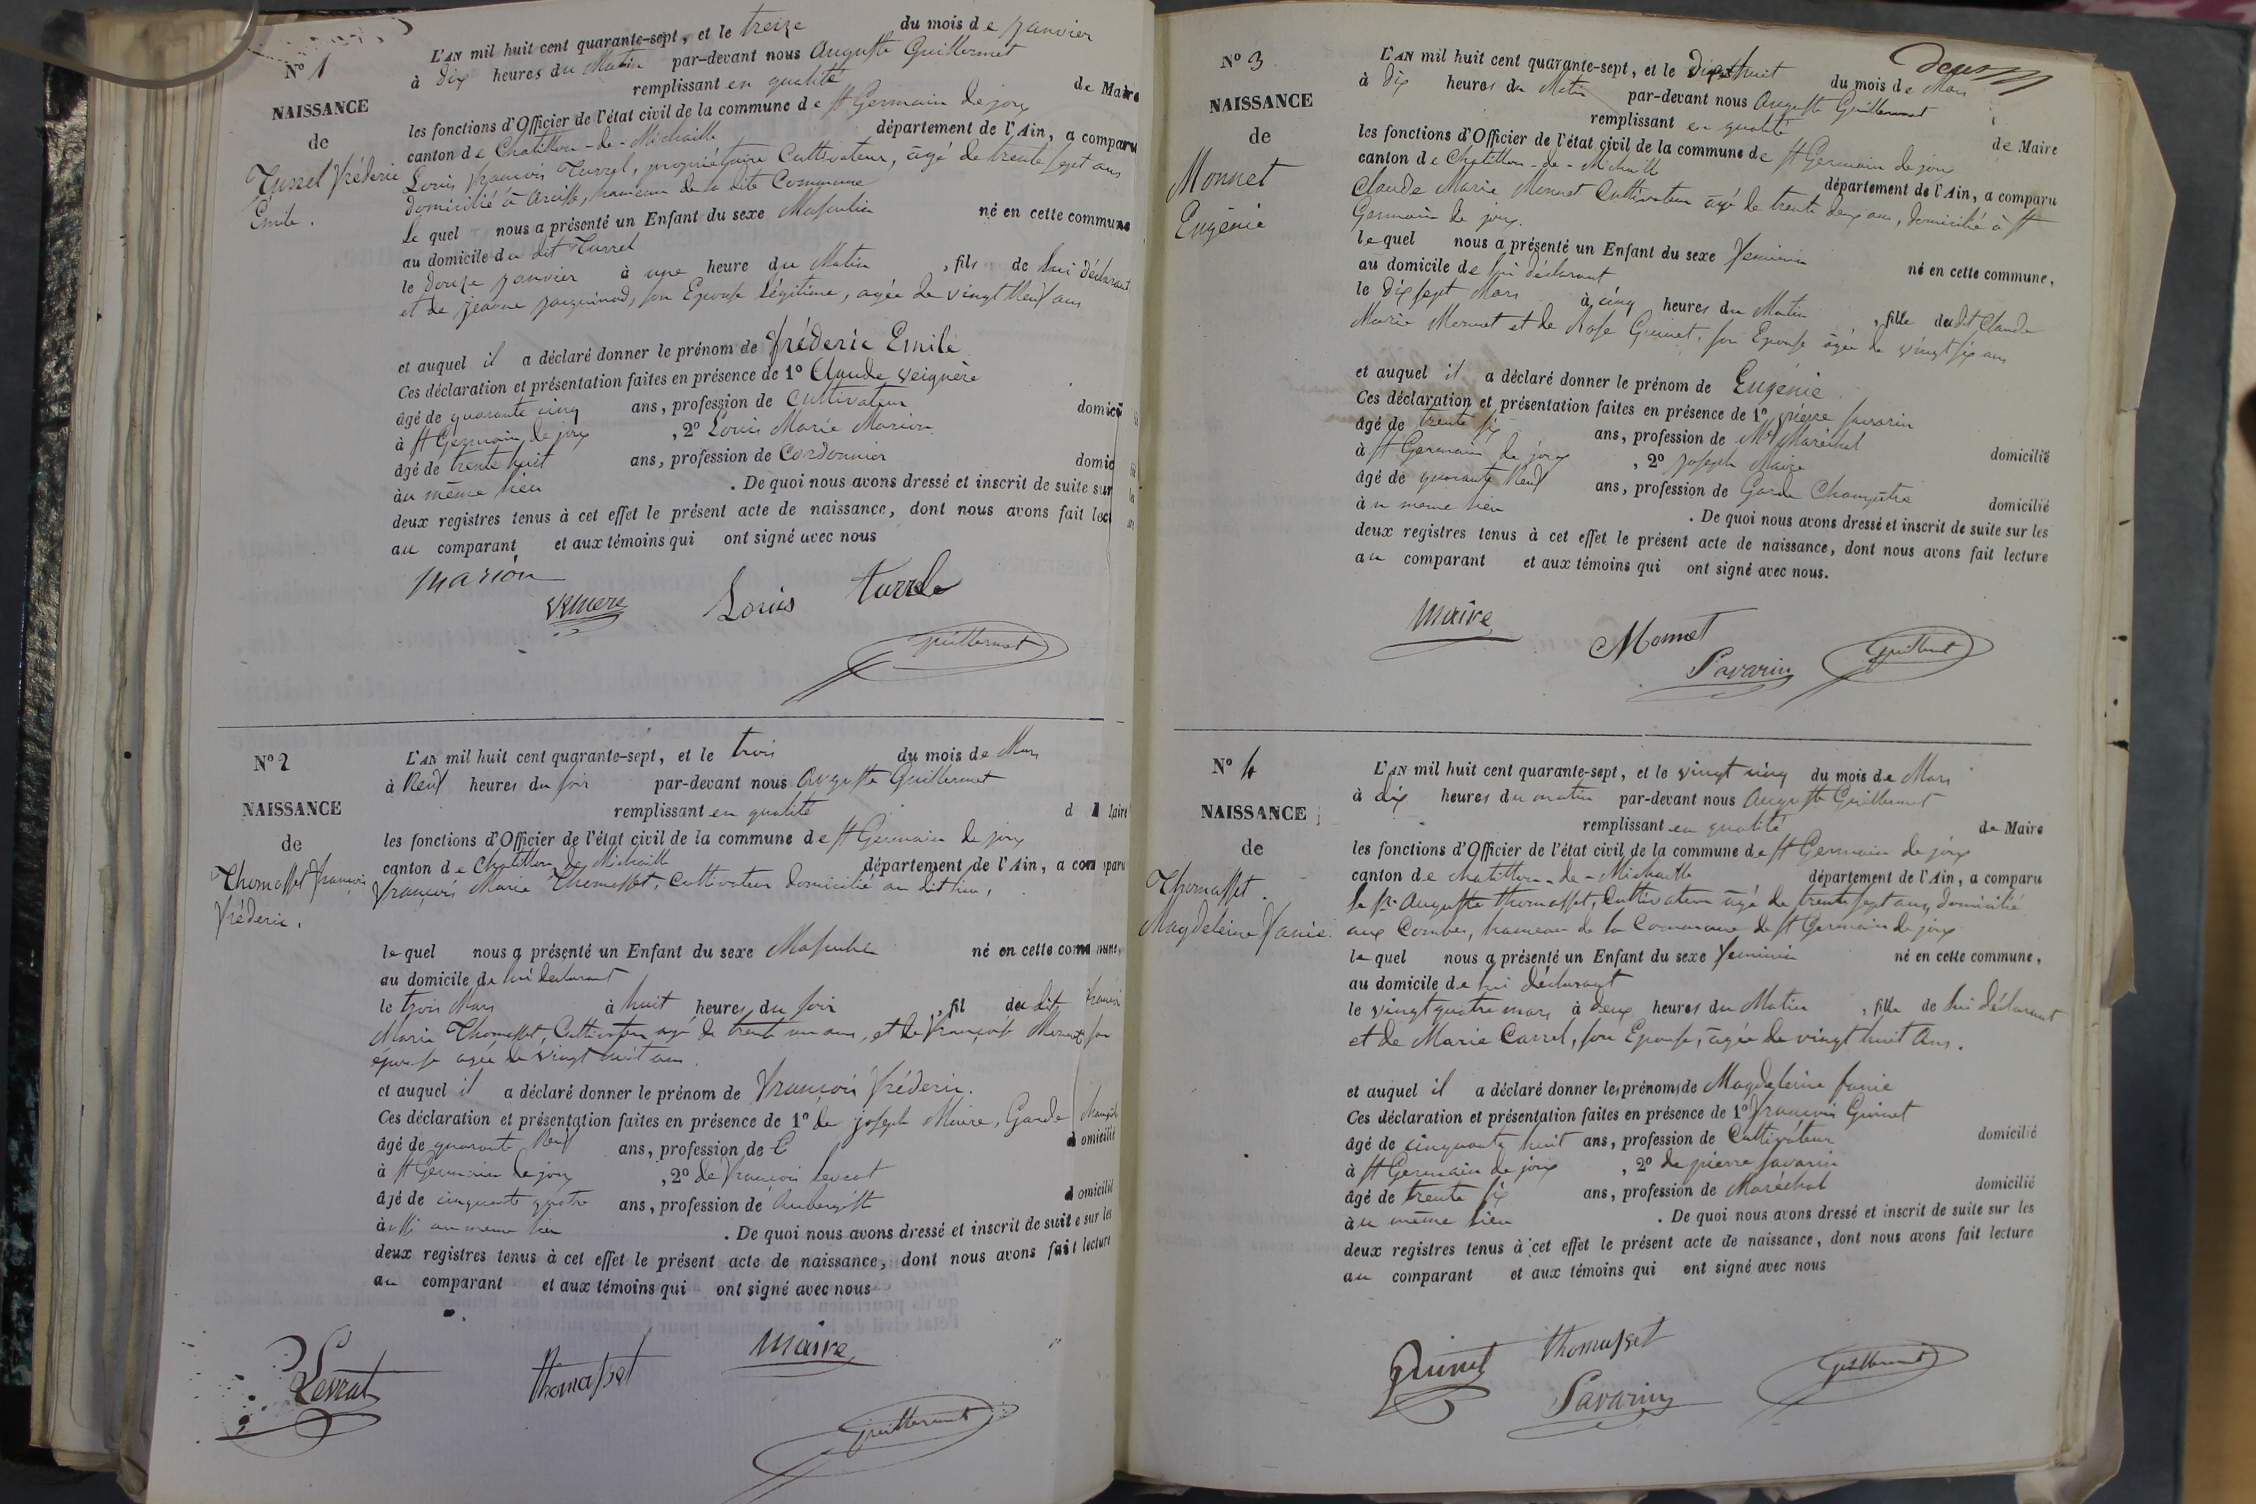 N° 1
NAISSANCE
de
Turrel Fréderic
Émile.
L'AN mil huit cent quarante-sept, et le treize du mois de janvier
à dix heures du Matin par-devant nous Auguste Guillermet
remplissant en qualité de Maire
les fonctions d'Officier de l'état civil de la commune de St Germain de joux
canton de Chatillon-de-Michaille département de l'Ain, a comparu
Louis François Turrel, propriétaire Cultivateur, âgé de trente sept ans
domicilié à hameau de la dite Commune
Le quel nous a présenté un Enfant du sexe Masculin né en cette commune
au domicile du dit Turrel
le douze janvier à une heure du Matin, fils de lui déclarant
et de jeanne son Epouse légitime, agée de vingt Neuf ans
et auquel il a déclaré donner le prénom de Fréderic Emile
Ces déclaration et présentation faites en présence de 1° Claude
âgé de quarante cinq ans, profession de Cultivateur domici
à St Germain de joux, 2° Louis Marie Marion
âgé de trente huit ans, profession de Cordonnier domic
au même lieu. De quoi nous avons dressé et inscrit de suite sur
deux registres tenus à cet effet le présent acte de naissance, dont nous avons fait lec
au comparant et aux témoins qui ont signé avec nous
Marion
Louis Turrel
Guillermet
N° 2
NAISSANCE
de
Thomasset François
Fréderic.
L'AN mil huit cent quarante-sept, et le trois du mois de Mars
à Neuf heures du soir par-devant nous Auguste Guillermet
remplissant en qualité d Maire
les fonctions d'Officier de l'état civil de la commune de St Germain de joux
canton de Chatillon de Michaille département de l'Ain, a comparu
François Marie Thomasset, Cultivateur domicilié au dit lieu,
le quel nous a présenté un Enfant du sexe Masculin né en cette commune,
au domicile de lui declarant
le trois Mars à huit heures du soir, fil du dit François
Marie Thomasset, Cultivateur agé de trente un ans, et de Françoise son
épouse agée de vingt huit ans
et auquel il a déclaré donner le prénom de François Fréderic.
Ces déclaration et présentation faites en présence de 1° de joseph Maire, Garde Champêtre
âgé de quarante Neuf ans, profession de C domicilié
à St Germain de joux, 2° de François Levrat
âgé de cinquante quatre ans, profession de Aubergiste domicilié
aussi au meme lieu. De quoi nous avons dressé et inscrit de suite sur les
deux registres tenus à cet effet le présent acte de naissance, dont nous avons fait lecture
au comparant et aux témoins qui ont signé avec nous
Levrat Thomasset Maire
Guillermet
deux
N° 3
NAISSANCE
de
Monnet
Eugénie
L'AN mil huit cent quarante-sept, et le dix huit du mois de Mars
à dix heures du Matin par-devant nous Auguste Guillermet
remplissant en qualité de Maire
les fonctions d'Officier de l'état civil de la commune de St Germain de joux
canton de Chatillon-de-Michaille département de l'Ain, a comparu
Claude Marie Monnet Cultivateur âgé de trente deux ans, domicilié à St
Germain de joux.
le quel nous a présenté un Enfant du sexe Feminin né en cette commune,
au domicile de lui déclarant
le dix sept Mars à cinq heures du Matin, fille du dit Claude
Marie Monnet et de Rose Guinet, son Epouse âgée de vingt six ans
et auquel il a déclaré donner le prénom de Eugénie
Ces déclaration et présentation faites en présence de 1° pierre Savarin
âgé de trente six ans, profession de Maréchal domicilié
à St Germain de joux, 2° joseph Maire
âgé de quarante Neuf ans, profession de Garde Champêtre domicilié
au meme lieu. De quoi nous avons dressé et inscrit de suite sur les
deux registres tenus à cet effet le présent acte de naissance, dont nous avons fait lecture
au comparant et aux témoins qui ont signé avec nous.
Maire Monnet
Savarin Guillermet
N° 4
NAISSANCE
de
Thomasset.
Magdeleine Fanie.
L'AN mil huit cent quarante-sept, et le vingt cinq du mois de Mars
à dix heures du matin par-devant nous Auguste Guillermet
remplissant en qualité de Maire
les fonctions d'Officier de l'état civil de la commune de St Germain de joux
canton de Chatillon-de-Michaille département de l'Ain, a comparu
le Sr Auguste Thomasset, Cultivateur âgé de trente sept ans, domicilié
aux Combes, hameau de la Commune de St Germain de joux
le quel nous a présenté un Enfant du sexe Feminin né en cette commune,
au domicile de lui déclarant
le vingt quatre mars à deux heures du Matin, fille de lui déclarant
et de Marie Carrel, son Epouse, âgée de vingt huit Ans.
et auquel il a déclaré donner les prénoms de Magdeleine fanie
Ces déclaration et présentation faites en présence de 1° François Guinet
âgé de cinquante huit ans, profession de Cultivateur domicilié
à St Germain de joux, 2° de pierre Savarin
âgé de trente six ans, profession de Maréchal domicilié
au même lieu. De quoi nous avons dressé et inscrit de suite sur les
deux registres tenus à cet effet le présent acte de naissance, dont nous avons fait lecture
au comparant et aux témoins qui ont signé avec nous
Guinet Thomasset
Savarin Guillermet